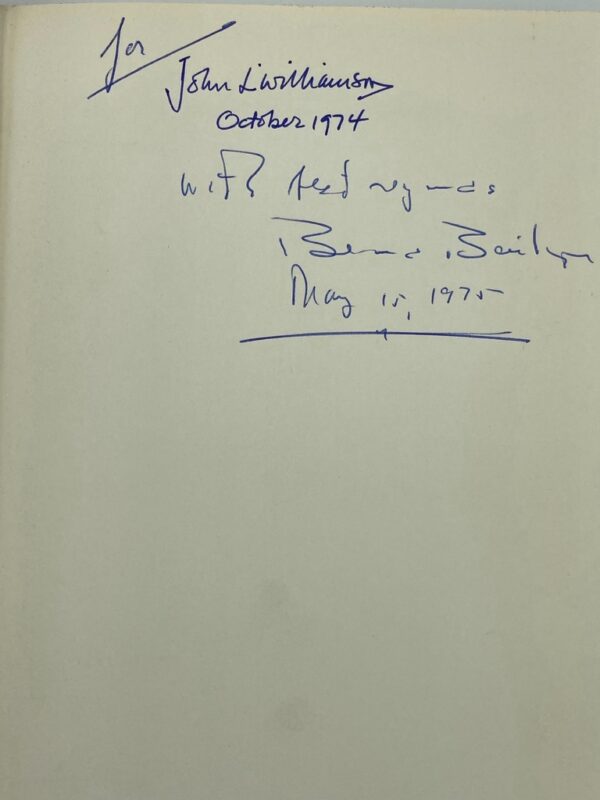 for
John L Williamson
October 1974
with best regards
Bernard Bailyn
May 15, 1975